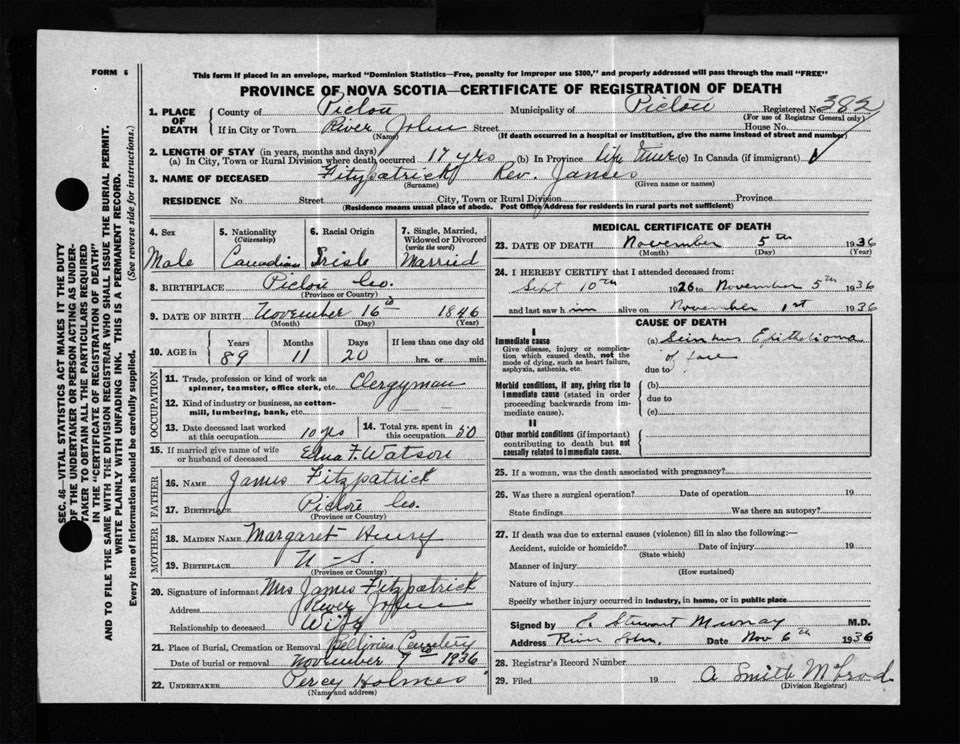 FORM 6
This form if placed in an envelope, marked "Dominion Statistics—Free, penalty for improper use $300," and properly addressed will pass through the mail "FREE"
PROVINCE OF NOVA SCOTIA—CERTIFICATE OF REGISTRATION OF DEATH
1. PLACE OF DEATH County of Pictou Municipality of Pictou Registered No. 382
(For use of Registrar General only)
If in City or Town River John Street House No.
(Name) (If death occurred in a hospital or institution, give the name instead of street and number)
2. LENGTH OF STAY (in years, months and days)
(a) In City, Town or Rural Division where death occurred 17 yrs (b) In Province Life time (c) In Canada (if immigrant)
3. NAME OF DECEASED Fitzpatrick Rev. James
(Surname) (Given name or names)
RESIDENCE No. Street City, Town or Rural Division Province
(Residence means usual place of abode. Post Office Address for residents in rural parts not sufficient)
4. Sex 5. Nationality (Citizenship) 6. Racial Origin 7. Single, Married, Widowed or Divorced (write the word)
Male Canadian Irish Married
8. BIRTHPLACE Pictou Co.
(Province or Country)
9. DATE OF BIRTH November 16 1846
(Month) (Day) (Year)
10. AGE in Years Months Days If less than one day old
89 11 20 hrs. or min.
OCCUPATION
11. Trade, profession or kind of work as spinner, teamster, office clerk, etc. Clergyman
12. Kind of industry or business, as cotton-mill, lumbering, bank, etc.
13. Date deceased last worked at this occupation 10 yrs 14. Total yrs. spent in this occupation 50
15. If married give name of wife or husband of deceased Edna F. Watson
FATHER
16. NAME James Fitzpatrick
17. BIRTHPLACE Pictou Co.
(Province or Country)
MOTHER
18. MAIDEN NAME Margaret Henry
19. BIRTHPLACE N-S.
(Province or Country)
20. Signature of informant Mrs James Fitzpatrick
Address River John
Relationship to deceased Wife
21. Place of Burial, Cremation or Removal Cemetery
Date of burial or removal November 7 1936
22. UNDERTAKER Percy Holmes
(Name and address)
MEDICAL CERTIFICATE OF DEATH
23. DATE OF DEATH November 5th 1936
(Month) (Day) (Year)
24. I HEREBY CERTIFY that I attended deceased from:
Sept 10th 1926 to November 5th 1936
and last saw him alive on November 1st 1936
CAUSE OF DEATH
I
Immediate cause (a) Epithelioma
Give disease, injury or complication which caused death, not the mode of dying, such as heart failure, asphyxia, asthenia, etc. of face
due to
Morbid conditions, if any, giving rise to immediate cause (stated in order proceeding backwards from immediate cause). (b)
due to
(c)
II
Other morbid conditions (if important) contributing to death but not causally related to immediate cause.
25. If a woman, was the death associated with pregnancy?
26. Was there a surgical operation? Date of operation 19
State findings Was there an autopsy?
27. If death was due to external causes (violence) fill in also the following:—
Accident, suicide or homicide? Date of injury 19
(State which)
Manner of injury
(How sustained)
Nature of injury
Specify whether injury occurred in industry, in home, or in public place
Signed by Stewart Murray M.D.
Address River John Date Nov 6th 1936
28. Registrar's Record Number
29. Filed 19 A Smith
(Division Registrar)
SEC. 46—VITAL STATISTICS ACT MAKES IT THE DUTY
OF THE UNDERTAKER OR PERSON ACTING AS UNDER-
TAKER TO OBTAIN ALL THE PARTICULARS REQUIRED
IN THE "CERTIFICATE OF REGISTRATION OF DEATH"
AND TO FILE THE SAME WITH THE DIVISION REGISTRAR WHO SHALL ISSUE THE BURIAL PERMIT.
WRITE PLAINLY WITH UNFADING INK. THIS IS A PERMANENT RECORD.
Every item of information should be carefully supplied. (See reverse side for instructions.)